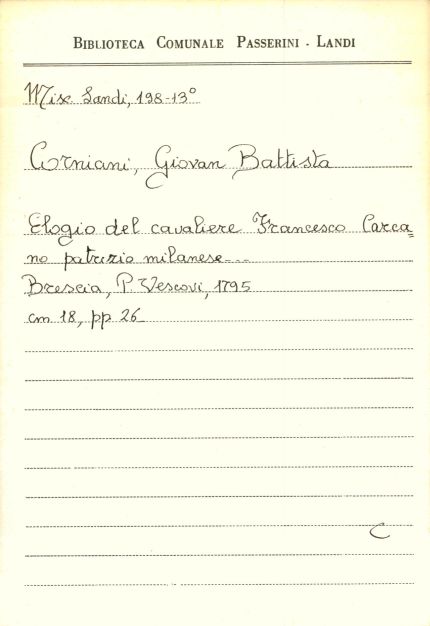 BIBLIOTECA COMUNALE PASSERINI - LANDI
Misc Landi, 198-13°
Corniani, Giovan Battista
Elogio del cavaliere Francesco Carca=
no patrizio milanese...
Brescia, P. Vescovi, 1795
cm 18, pp 26
C